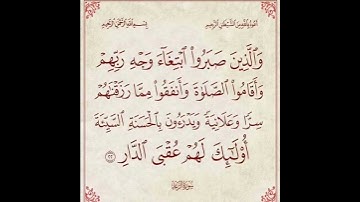 أعوذ بالله من الشيطان الرجيم
بسم الله الرحمن الرحيم
وَٱلَّذِينَ صَبَرُوا۟ ٱبْتِغَآءَ وَجْهِ رَبِّهِمْ
وَأَقَامُوا۟ ٱلصَّلَوٰةَ وَأَنفَقُوا۟ مِمَّا رَزَقْنَٰهُمْ
سِرًّا وَعَلَانِيَةً وَيَدْرَءُونَ بِٱلْحَسَنَةِ ٱلسَّيِّئَةَ
أُو۟لَٰٓئِكَ لَهُمْ عُقْبَى ٱلدَّارِ ٢٢
سورة الرعد